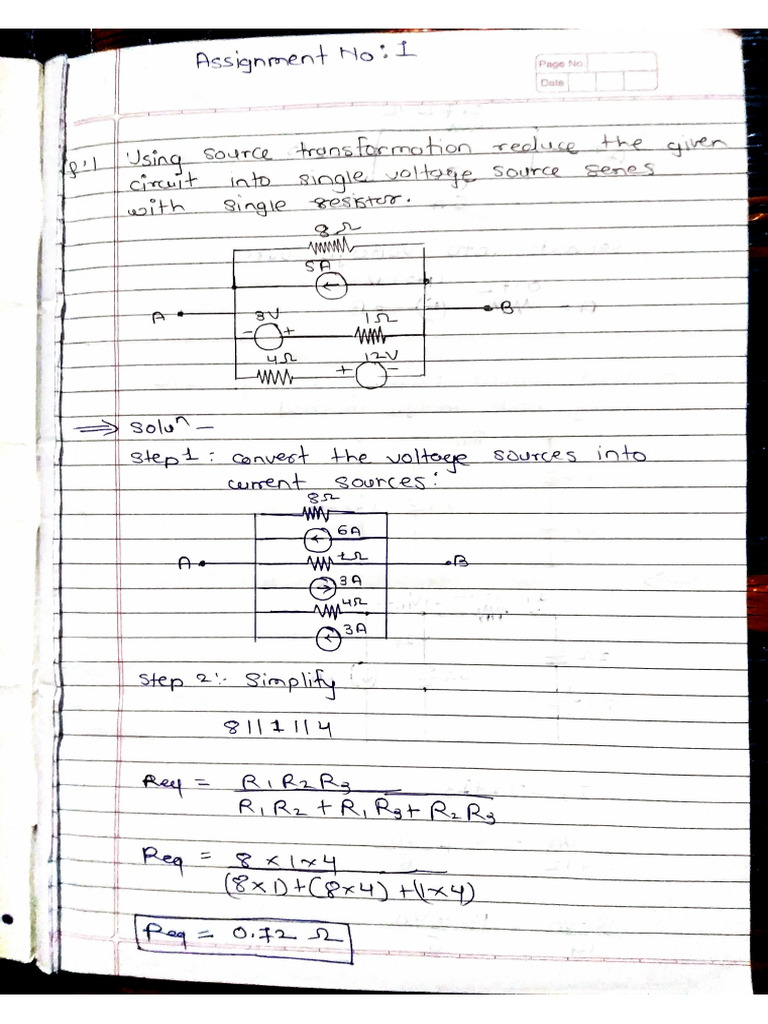 Assignment No: 1
Page No
Date
Q.1 Using source transformation reduce the given
circuit into single voltage source series
with single resistor.
8Ω
5A
A
B
3V
1Ω
- +
4Ω
12V
+ -
⇒ Soluⁿ -
Step 1: convert the voltage sources into
current sources:
8Ω
6A
A
1Ω
B
3A
4Ω
3A
Step 2:- Simplify
8 || 1 || 4
Req = R1 R2 R3
R1 R2 + R1 R3 + R2 R3
Req = 8 × 1 × 4
(8×1)+(8×4)+(1×4)
Req = 0.72 Ω